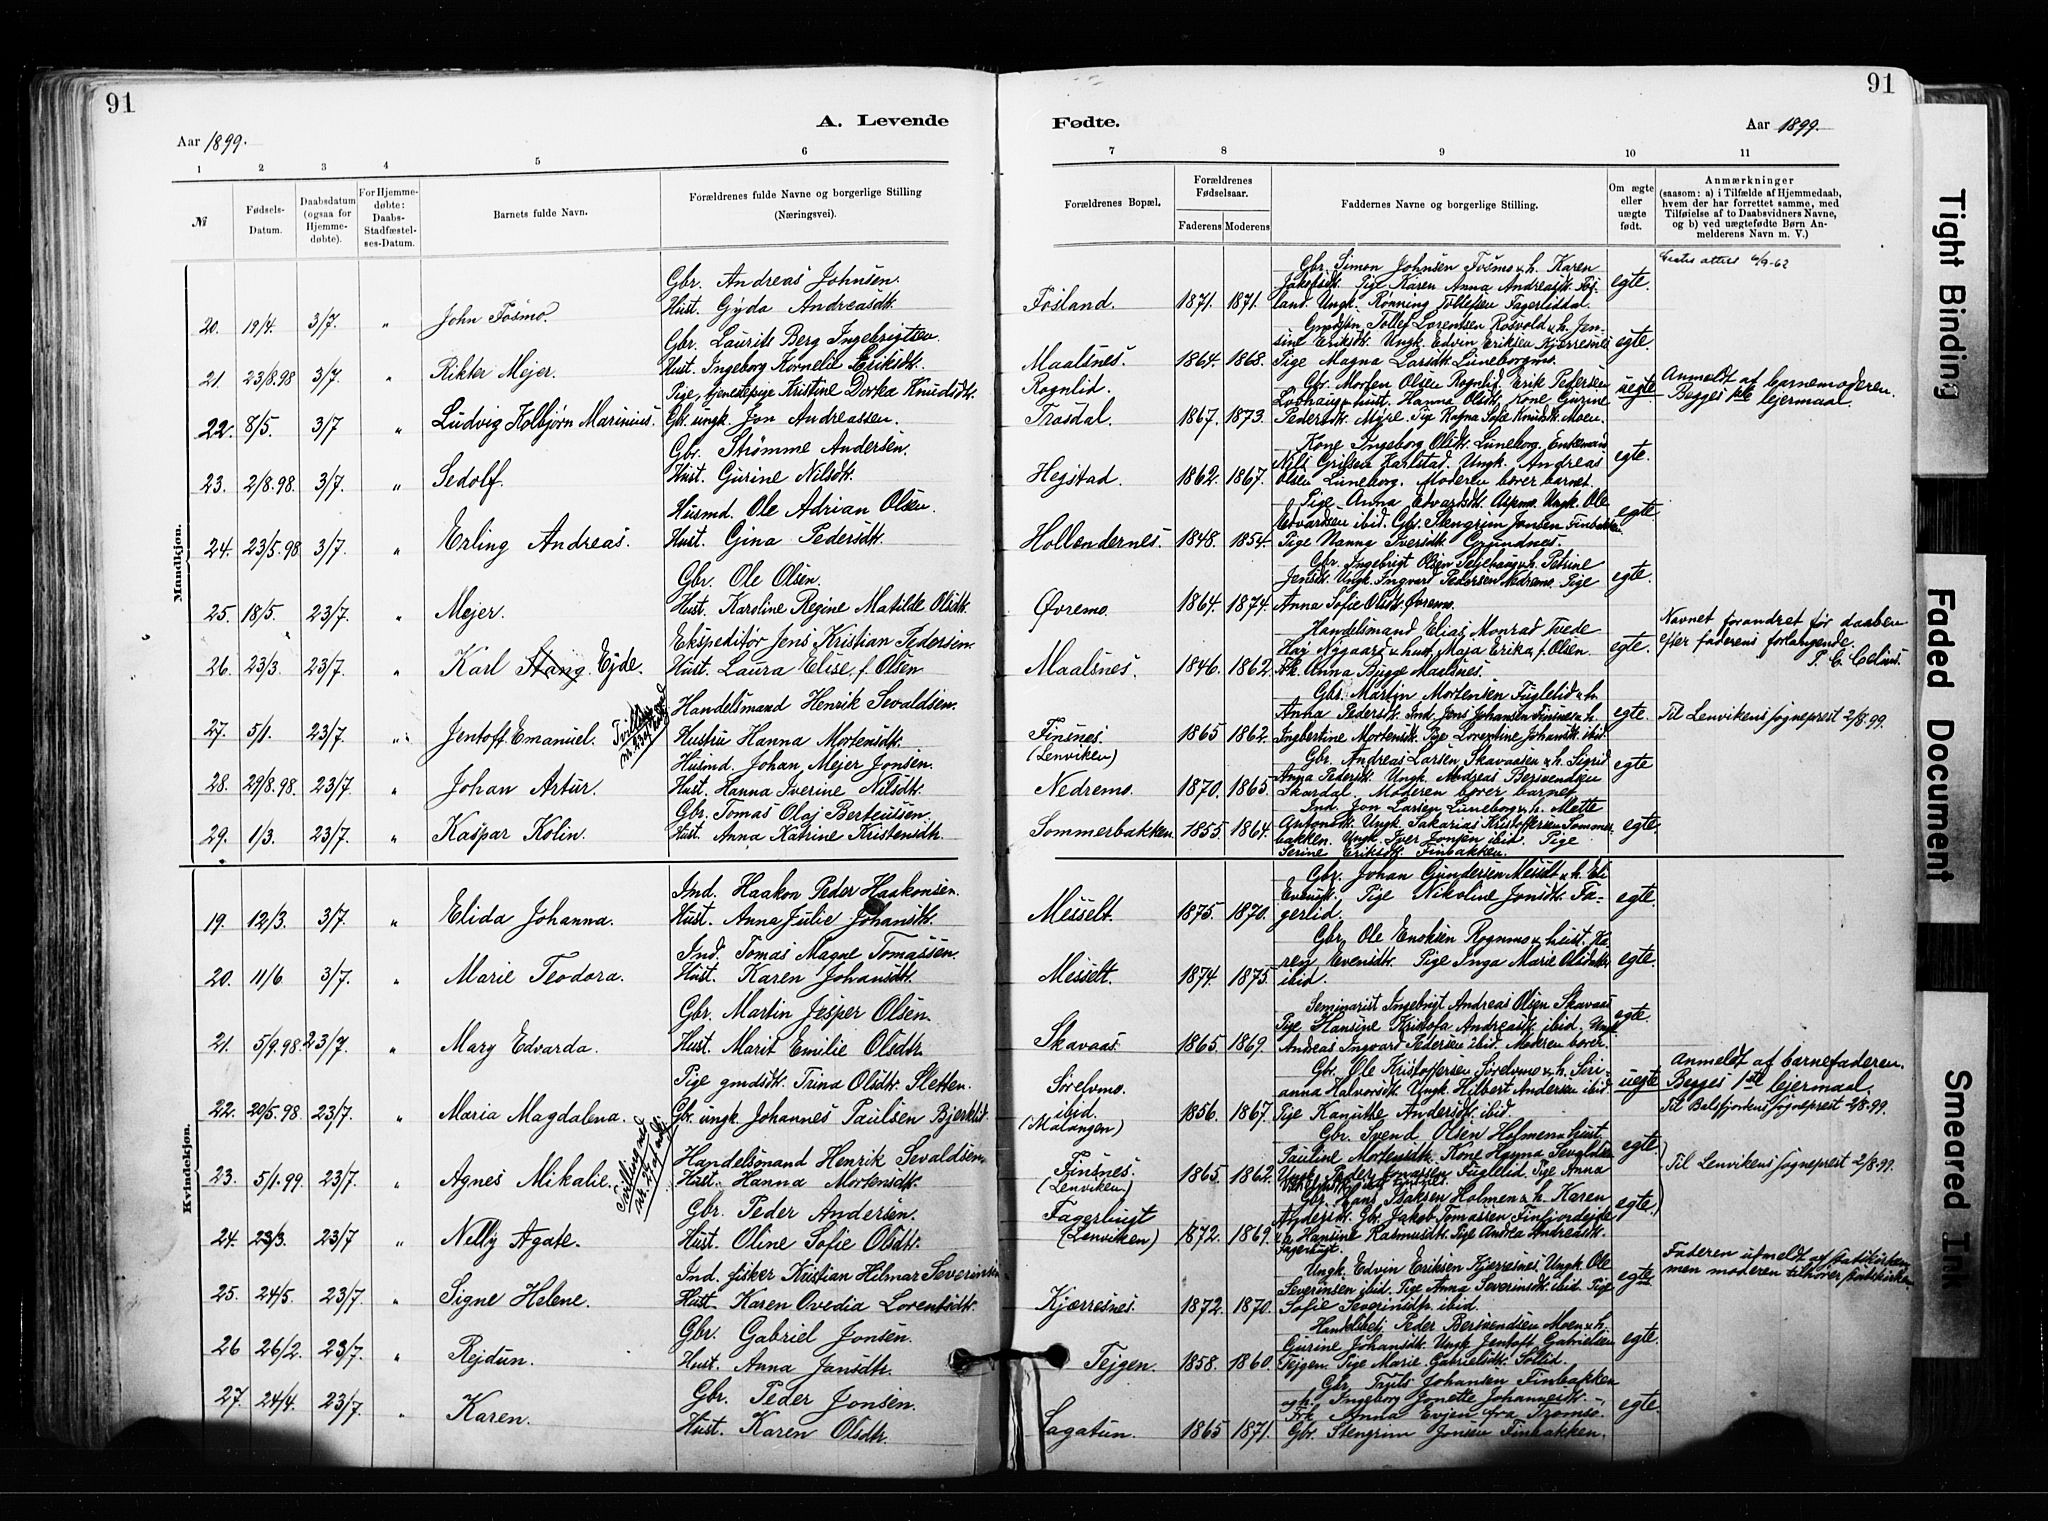 91
Aar 1899.
A. Levende
1 2 3 4 5 6
№
Fødsels-
Datum.
Daabsdatum
(ogsaa for
Hjemme-
døbte).
For Hjemme-
døbte:
Daabs-
Stadfæstel-
ses-Datum.
Barnets fulde Navn.
Forældrenes fulde Navne og borgerlige Stilling
(Næringsvei).
Mandkjøn.
Gbr. Andreas Johnsen.
20. 19/4. 3/7. „ John Fosmo. Hust. Gyda Andreasdtr.
Gbr. Laurits Berg Ingebrigtsen.
21. 23/8.98 3/7. „ Rikter Mejer. Hust. Ingeborg Kornelia Eriksdtr.
Pige, tjenestepige Kristine Dorkea Knudsdtr.
22. 8/5. 3/7 „ Ludvig Kolbjørn Marinius. Gbr. ungk. Jon Andreassen.
Gbr. Strømme Andersen.
23. 2/8.98. 3/7. „ Sedolf. Hust. Gurine Nilsdtr.
Husmd. Ole Adrian Olsen.
24. 23/5.98 3/7. „ Erling Andreas. Hust. Gina Pedersdtr.
Gbr. Ole Olsen.
25. 18/5. 23/7. „ Mejer. Hust. Karoline Regine Matilde Olsdtr.
Ekspeditør Jens Kristian Pedersen.
26. 23/3. 23/7. „ Karl Stang Ejde. Hust. Laura Elise f. Olsen
Handelsmand Henrik Sevaldsen.
27. 5/1. 23/7. „ Jentoft Emanuel. Hustru Hanna Mortensdtr.
Husmd. Johan Mejer Jonsen.
28. 29/8.98. 23/7. „ Johan Artur. Hust. Hanna Iverine Nilsdtr.
Gbr. Tomas Olaj Berteussen.
29. 1/3. 23/7. „ Kaspar Kolin. Hust. Anna Katrine Kristensdtr.
Kvindekjøn.
Ind. Haakon Peder Haakonsen.
19. 12/3. 3/7. „ Elida Johanna. Hust. Anna Julie Johansdtr.
Ind. Tomas Magne Tomassen.
20. 11/6 3/7. „ Marie Teodora. Hust. Karen Johansdtr.
Gbr. Martin Jesper Olsen.
21. 5/9.98. 23/7. „ Mary Edvarda. Hust. Marit Emilie Olsdtr.
Pige gmdsdtr. Trina Olsdtr. Sletten.
22. 20/5.98. 23/7. „ Maria Magdalena. Gbr. ungk. Johannes Paulsen Bjerklid
Handelsmand Henrik Sevaldsen.
23. 5/1.99. 23/7. „ Agnes Mikalie. Tvilling med nr. 27 af mdkj. Hust. Hanna Mortensdtr.
Gbr. Peder Andersen.
24. 23/3. 23/7 „ Nelly Agate. Hust. Oline Sofie Olsdtr.
Ind. fisker Kristian Hilmar Severinsen
25. 24/5. 23/7. „ Signe Helene. Hust. Karen Ovedia Lorentsdtr.
Gbr. Gabriel Jonsen.
26 26/2. 23/7. „ Rejdun. Hust. Anna Jansdtr.
Gbr. Peder Jonsen.
27. 24/4. 23/7. „ Karen. Hust. Karen Olsdtr.
91
Fødte.
Aar 1899.
7 8 9 10 11
Forældrenes Bopæl.
Forældrenes
Fødselsaar.
Faderens Moderens
Faddernes Navne og borgerlige Stilling.
Om ægte
eller
uægte
født.
Anmærkninger
(saasom: a) i Tilfælde af Hjemmedaab,
hvem der har forrettet samme, med
Tilføielse af to Daabsvidners Navne,
og b) ved uægtefødte Børn An-
melderens Navn m. V.)
Gbr. Simon Johnsen Fosmo & h. Karen
Jakobsdtr. Pige Karen Anna Andreasdtr. Fos-
Fosland. 1871. 1871. land. Ungk. Rønning Tollefsen Fagerliddal. egte. attest 6/9-62
Tollef Lorentsen Rosvold & h. Jen-
sine Eriksdtr. Ungk. Edvin Eriksen Kjerresnes
Maalsnes. 1864. 1868. Pige Magna Larsdtr. Luneborgmo. egte.
Rognlid. Gbr. Morten Olsen Rognlid. Erik Pedersen
hust. Hanna Olsdtr. Kone Gurine
Trosdal. 1867. 1873. Pedersdtr. Myre. Pige Ragna Sofie Knudsdtr. Moen. uegte Anmeldt af barnemoderen.
Begges 1ste lejermaal.
Kone Ingeborg Olsdtr. Luneborg. Enkemand
Nils Karlstad. Ungk. Andreas
Hegstad. 1862. 1867. Olsen Luneborg. Moderen bører barnet. egte.
Pige Anna Edvardsdtr. Aspmo. Ungk. Ole
Edvardsen ibid. Gbr. Stengrim Jonsen Finbakken
Hollendernes. 1848. 1854. Pige Nanna Iversdtr. Grundnes. egte.
Gbr. Ingebrigt Olsen & h. Petrine
Jensdtr. Ungk. Ingvard Pedersen Nedremo. Pige
Øvremo. 1864. 1874. Anna Sofie Olsdtr. Øvremo. egte.
Handelsmand Elias Monrad Tvede
Nygaard & hust. Maja Erika f. Olsen
Maalsnes. 1846. 1862. Frk. Anna Bugge Maalsnes. egte. Navnet forandret før daaben
efter faderens forlangende.
Gbr. Martin Mortensen Fuglelid & h.
Anna Pedersdtr. Ind. Jens Johansen Finsnes & h.
Finsnes. (Lenviken) 1865 1862. Ingbertine Mortensdtr. Pige Lorentine Johansdtr. ibid. egte. Til Lenvikens sogneprest 2/8.99.
Gbr. Andreas Larsen Skavaasen & h. Sigrid
Anna Pedersdtr. Ungk. Andreas Bersvendsen
Nedremo. 1870. 1865. Skardal. Moderen bører barnet. egte
Ind. Jon Larsen Luneborg & h. Mette
Antonsdtr. Ungk. Sakarias Kristoffersen Sommer-
Sommerbakken. 1855 1864. bakken. Ungk. Iver Jonsen ibid. Pige egte.
Serine Eriksdtr. Finbakken.
Gbr. Johan Gundersen Messelt & h. Eli
Evensdtr. Pige Nikoline Jonsdtr. Fa-
Messelt. 1875. 1870. gerlid. egte.
Gbr. Ole Enoksen Rognmo & hust. Ka-
ren Evensdtr. Pige Inga Marie Olsdatter
Messelt. 1874. 1875. ibid. egte.
Seminarist Ingebrigt Andreas Olsen Skavaas
Pige Hansine Kristofa Andreasdtr. ibid. Ungk.
Skavaas. 1865. 1869. Andreas Ingvard Pedersen ibid. Moderen bører. egte.
Gbr. Ole Kristoffersen Sørelvmo & h. Siri-
anna Halvorsdtr. Ungk. Hilbert Andersen ibid.
Sørelvmo. ibid. (Malangen) 1856. 1867. Pige Kanutte Andersdtr. ibid. uegte Anmeldt af barnefaderen.
Begges 1ste lejermaal.
Til Balsfjordens sogneprest 2/8.99.
Gbr. Svend Olsen Holmen & hust.
Pauline Mortensdtr. Kone Hanna Sevaldsen
Finsnes. (Lenviken) 1865. 1862. Ungk. Peder Fuglelid. Pige Anna egte Til Lenvikens sogneprest 2/8.99.
Gbr. Hans Isaksen Holmen & h. Karen
Gbr. Jakob Tomassen Finfjordejde
Fagerbugt (Lenviken) 1872. 1869. & h. Hansine Rasmusdtr. Pige Andrea Andreasdtr. egte.
Fagerbugt.
Ungk. Edvin Eriksen Kjerresnes. Ungk. Ole
Severinsen ibid. Pige Anna Severinsdtr. ibid. Pige
Kjærresnes. 1872. 1870. Sofie Severinsdtr. ibid. egte Faderen utmeldt af statskirken
men moderen tilhører statskirken.
Handelsbetj. Peder Bersvendsen Moen & h.
Gurine Johansdtr. Ungk. Jentoft Gabrielsen
Tejgen. 1858. 1860. Tejgen. Pige Marie Gabrielsdtr. Sollid. egte.
Gbr. Truls Johansen Finbakken
& h. Ingeborg Jonette Johannesdtr.
Frk. Anna Evjen fra Tromsø.
Lagatun. 1865 1871. Gbr. Stengrim Jonsen Finbakken. egte.
Tight Binding
Faded Document
Smeared Ink